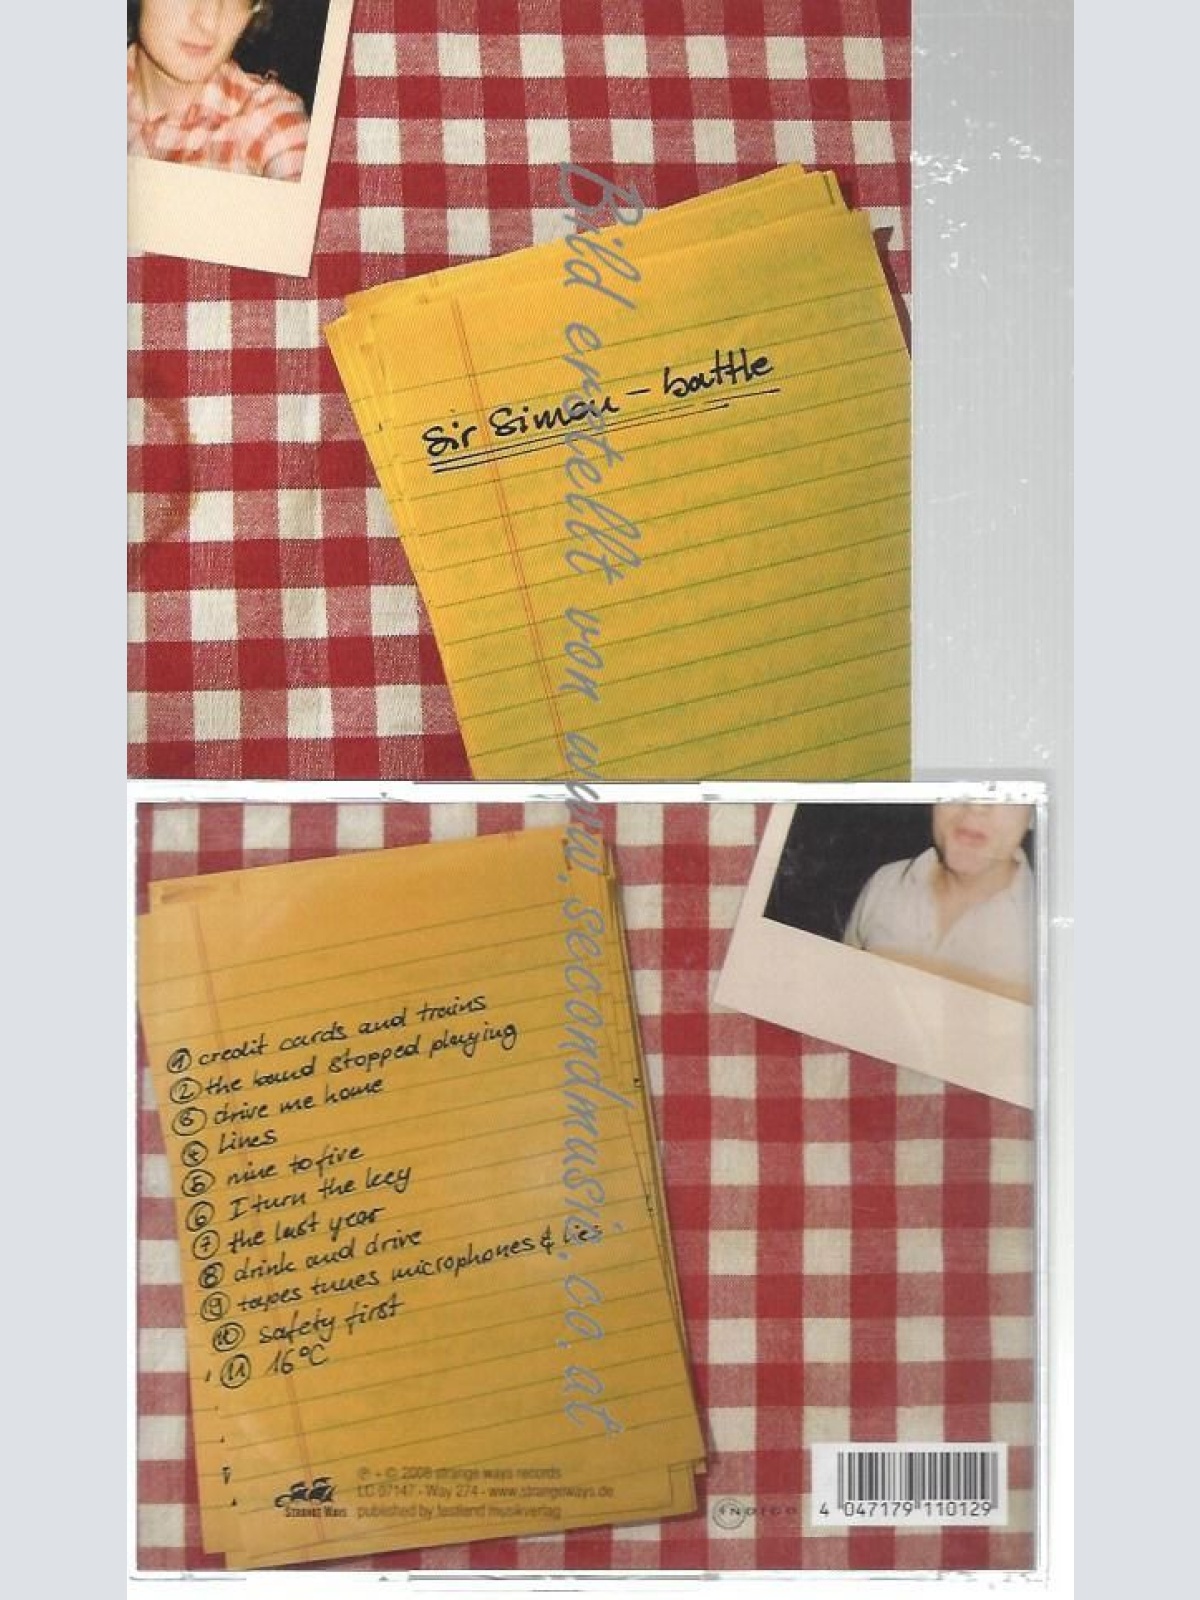 sir Simon - battle
Bild erstellt von www.secondmusic.co.at
1 credit cards and trains
2 the band stopped playing
3 drive me home
4 lines
5 nine to five
6 I turn the key
7 the last year
8 drink and drive
9 tapes tunes microphones & lies
10 safety first
11 16°C
℗ + © 2008 strange ways records
LC 07147 - Way 274 - www.strangeways.de
published by festland musikverlag
STRANGE WAYS
INDIGO
4 047179 110129